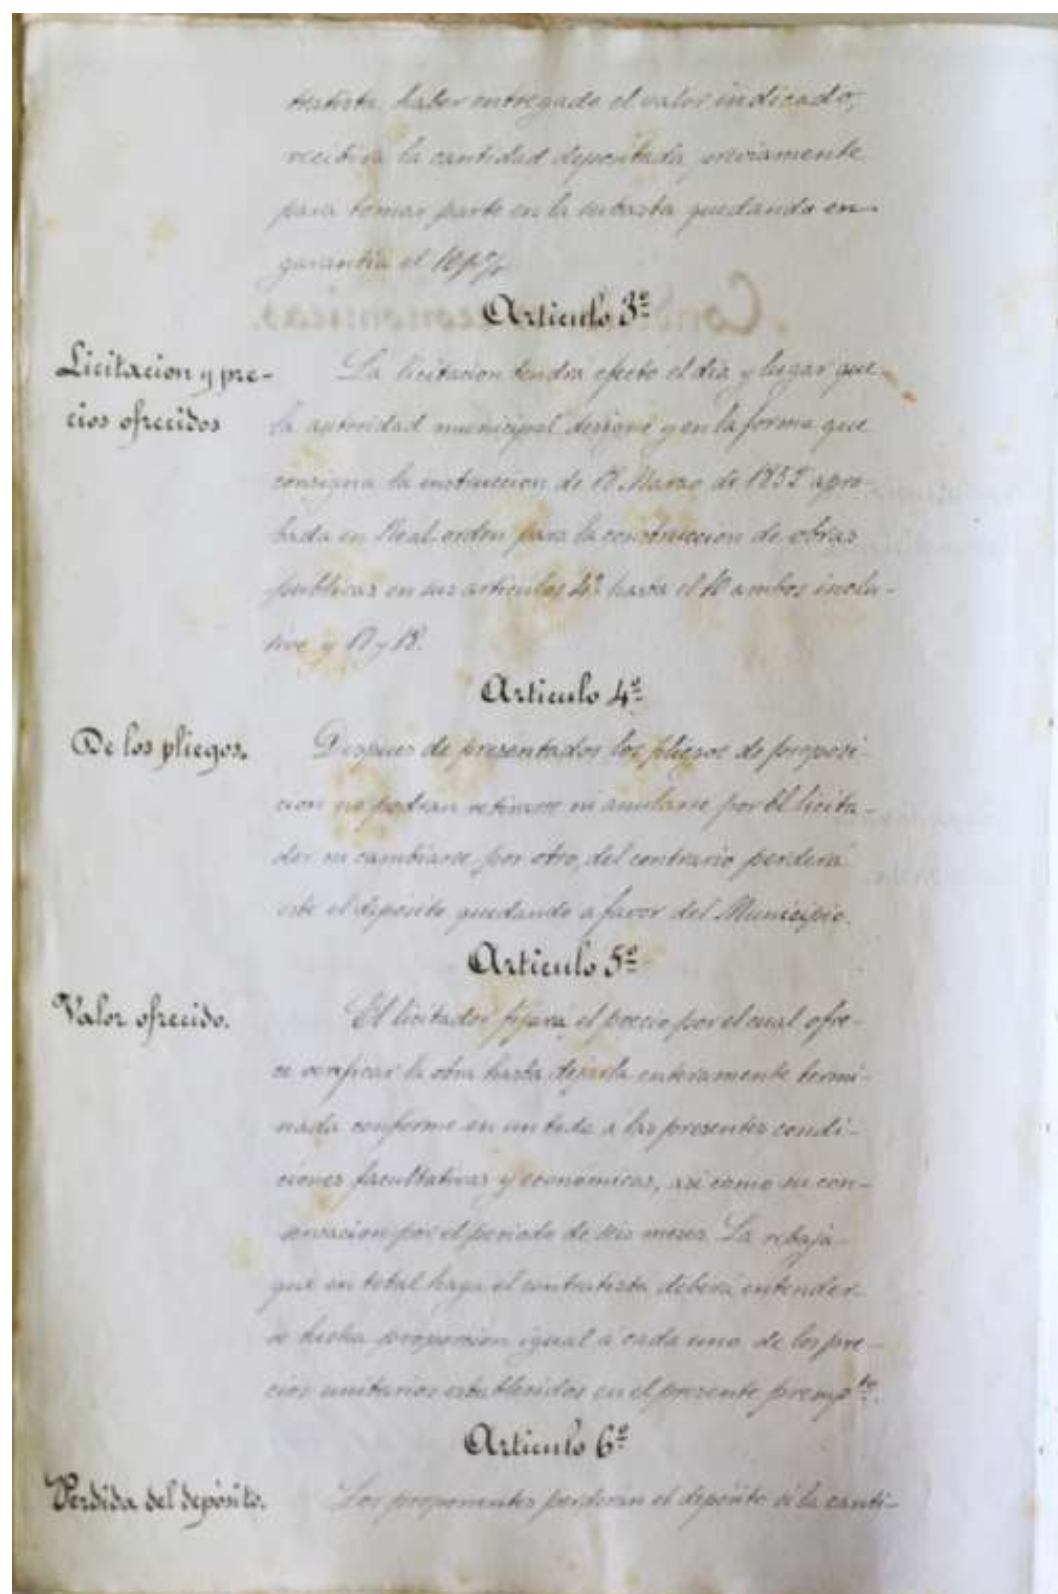 tratista haber entregado el valor indicado,
recibirá la cantidad depositada previamente
para tomar parte en la subasta quedando en
garantia el 10 p%
Articulo 3º
Licitacion y pre-
cios ofrecidos
La licitacion tendrá efecto el dia y lugar que
la autoridad municipal designe y en la forma que
consigna la instruccion de 18 Marzo de 1852 apro-
bada en Real orden para la construccion de obras
públicas en sus articulos 4º hasta el ambos inclu-
sive y 17 y 18.
Articulo 4º
De los pliegos.
Despues de presentados los pliegos de proposi-
cion no podran retirarse ni anularse por El licita-
dor ni cambiarse por otro, del contrario perderá
este el depósito quedando a favor del Municipio.
Articulo 5º
Valor ofrecido.
El licitador fijará el precio por el cual ofre-
ce verificar la obra hasta dejarla enteramente termi-
nada conforme en un todo a las presentes condi-
ciones facultativas y económicas, asi como su con-
servacion por el periodo de seis meses. La rebaja
que en total haga el contratista deberá entender-
se hecha proporcion igual á cada uno de los pre-
cios unitarios establecidos en el presente presupto.
Articulo 6º
Perdida del depósito.
Los proponentes perderán el depósito si la canti-